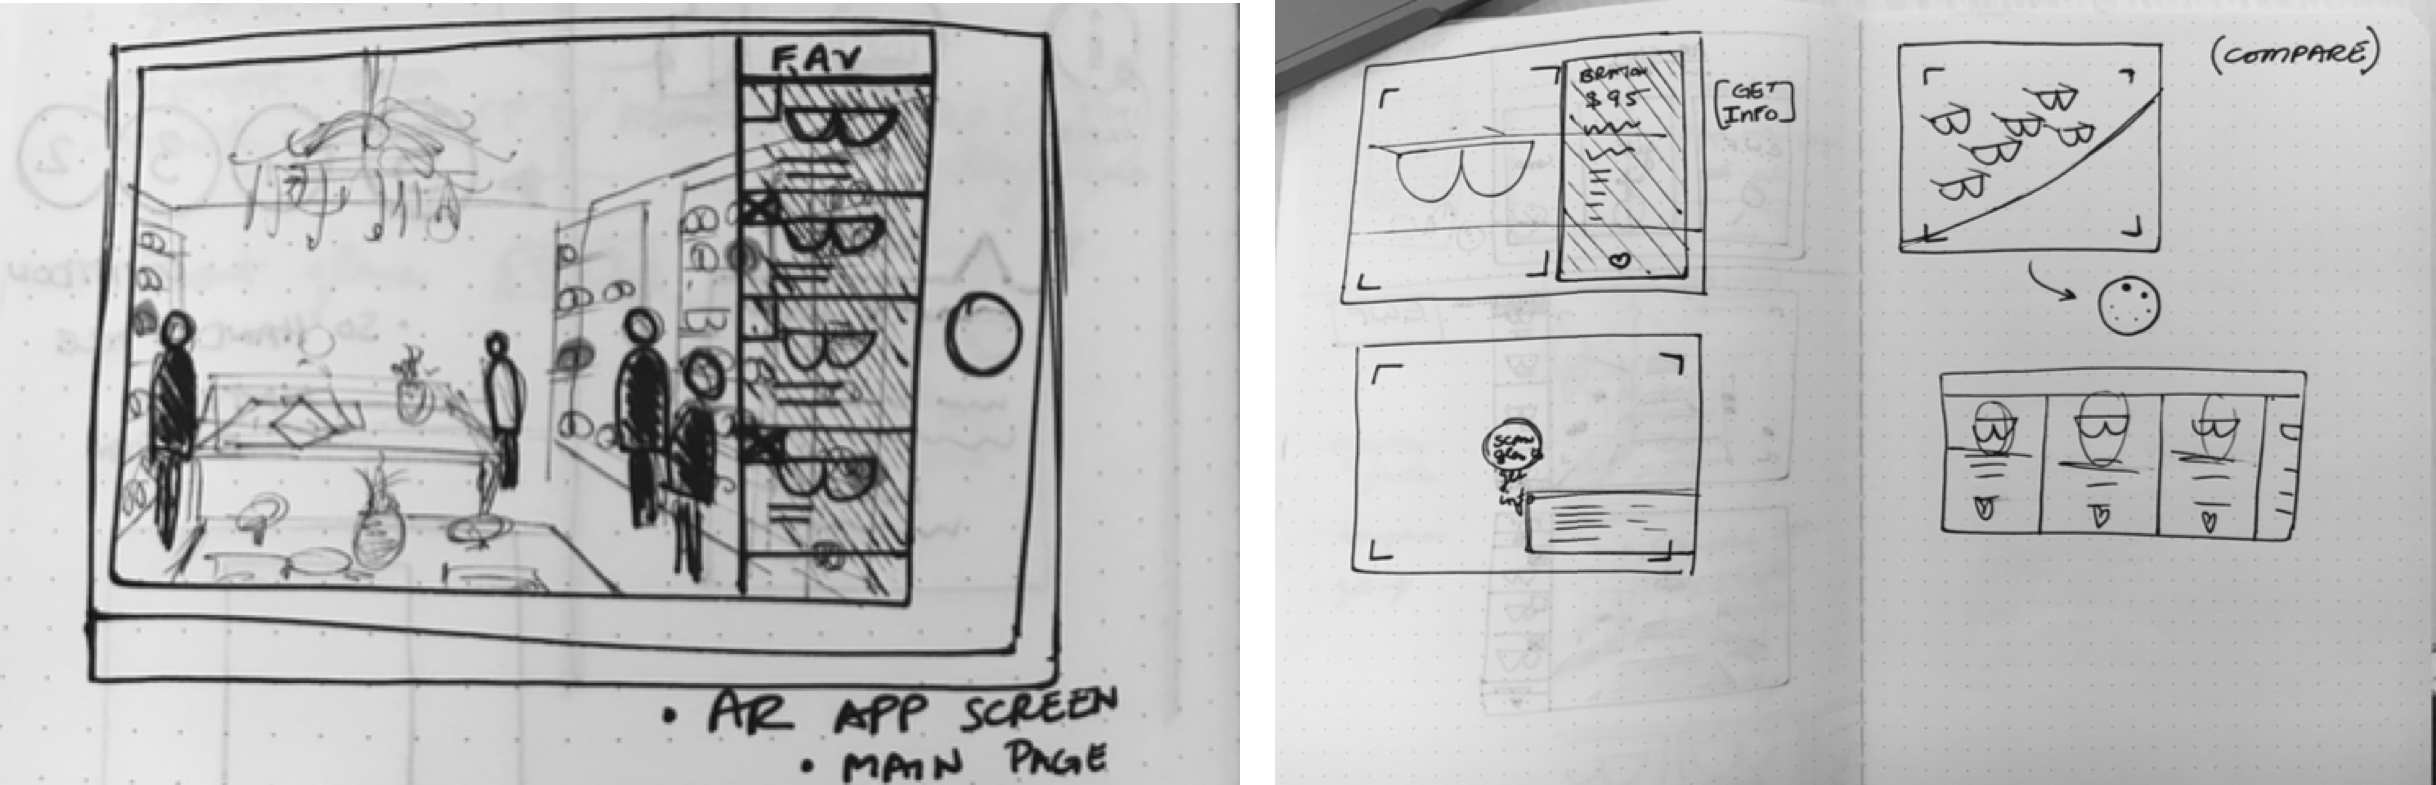 FAV
• AR APP SCREEN
• MAIN PAGE
$95
[GET
Info]
scan
get
info
(COMPARE)